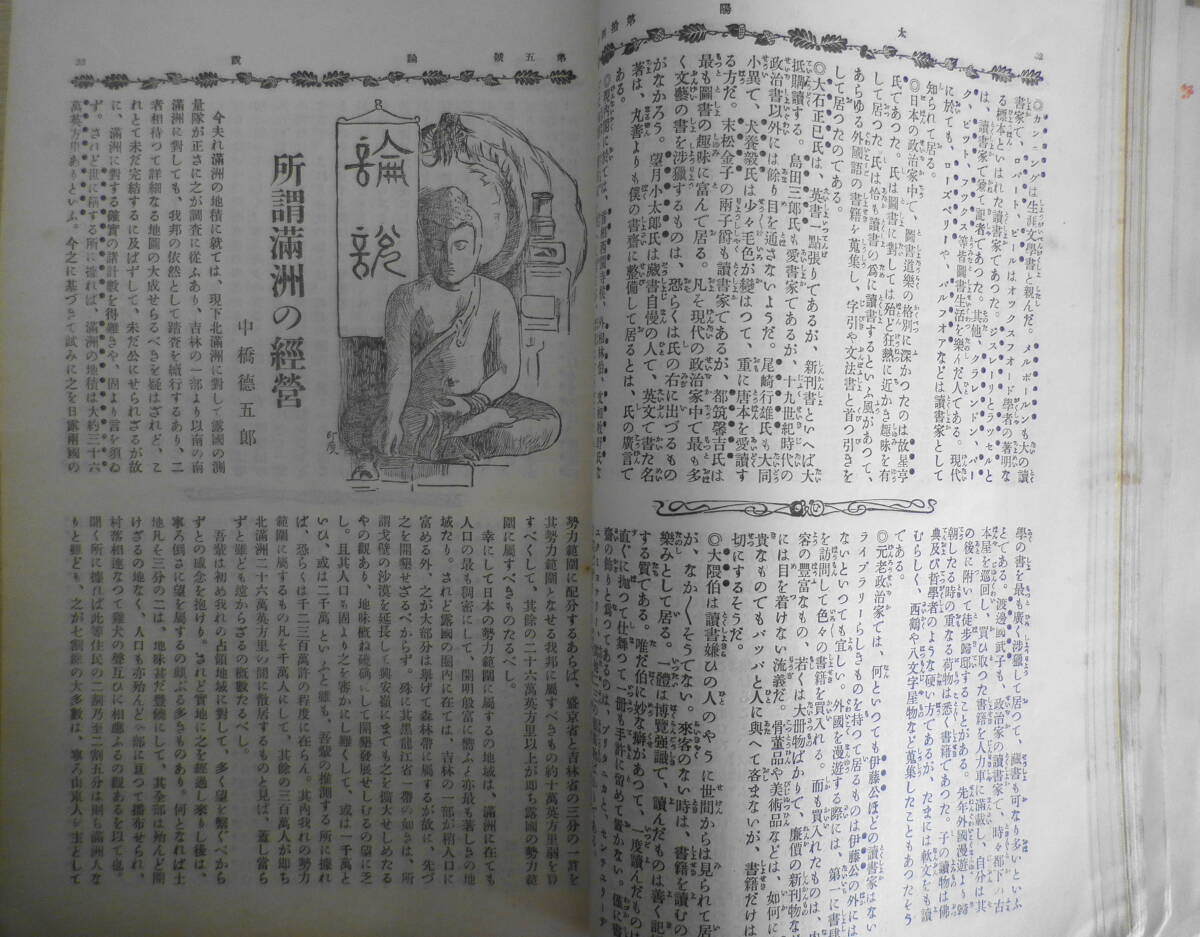 太
陽
◎カンニングは生涯文學書と親んだ。メルボールンも大の讀
書家で、ロバート、ピールはオックスフォード學者の著明な
る標本といはれた讀書家であった。ジスレーリとラッセルと
は、讀書家で兼て記者であった。其他、クランドン、パー
ク、ピット、フックス等皆圖書生活を樂んだ人である。現代
に於ても、ローズベリーや、バルフォアなどは讀書家として
知られて居る。
◎日本の政治家中で、圖書道樂の格別に深かつたのは故星亨
氏であつた。氏は圖書に對しては殆ど狂熱に近かき趣味を有
して居つた。氏は恰も讀書の爲に讀書するといふ風があつて、
あらゆる外國語の書籍を蒐集し、字引や文法書と首つ引きを
して居つたのである。
◎大石正巳氏は、英書一點張りであるが、新刊書といへば大
抵購讀する。島田三郎氏も愛書家であるが、十九世紀時代の
政治書以外には餘り目を通さないようだ。尾崎行雄氏も大同
小異て、犬養毅氏は少々毛色が變はつて、重に唐本を愛讀す
る方だ。末松金子の兩子爵も讀書家であるが、都筑馨吉氏は
最も圖書の趣味に富んで居る。凡そ現代の政治家中て最も多
く文藝の書を涉獵するものは、恐らくは氏の右に出づるもの
がなかろう。望月小太郎氏は藏書自慢の人て、英文て書た名
著は、丸善よりも僕の書齋に整備して居るとは、氏の廣言て
ある。
學の書を最も廣く涉獵して居つて、藏書も可なり多いといふ
ことである。渡邊國武子も、政治家の讀書家で、時々都下の古
本屋を巡回し、買ひ取つた書籍を人力車に滿載し、自分は其
の後に附いて徒歩歸邸することがある。先年外國漫遊より歸
朝したる時の重なる荷物は悉く書籍であつた。子の讀物は佛
典及び哲學者のような硬い方であるが、たまには軟文をも讀
むらしく、西鶴や八文字屋物など蒐集したこともあつたそう
である。
◎元老政治家では、何といつても伊藤公ほどの讀書家はない
ライブラリーらしきものを持つて居るものは伊藤公の外には
ないといつても宜しい。外國を漫遊する際には、第一に書肆
を訪問して色々の書籍を買入れる。而も買入れたものは、内
容の豐富なもの、若くは大册物ばかりで、廉價の新刊物な
には目を着けない流義だ。骨董品や美術品などは、如何に
貴なものでもパッパと人に與へて吝まないが、書籍だけは
切にするそうだ。
◎大隈伯は讀書嫌ひの人のやうに世間からは見られて居
が、なか〱そうてない。來客のない時は、書籍を讀むの
樂みとして居る。一體は博覽強識て、讀んだものは善く記
する質である。唯だ伯に妙な癖があつて、一度讀んだもの
直ぐに抛つて仕舞つて一册も手許に留めて置かない。僅に書
齋の餘りと爲つてあるのは、ブリタニカと、センチユリーデ
第五號
論
說
論說
所謂滿洲の經營
中橋德五郎
今夫れ滿洲の地積に就ては、現下北滿洲に對して露國の測
量隊が正さに之が調査に從ふあり、吉林の一部より以南の南
滿洲に對しても、我邦の依然として踏査を續行するあり、二
者相待つて詳細なる地圖の大成せらるべきを疑はざれど、こ
れとて未だ完結するに及ばずして、未だ公にせられざるが故
に、滿洲に對する確實の諸計數を得難きや、固より言を須ゐ
ず。されど世に稱する所に據れば、滿洲の地積は大約三十六
萬英方里ありといふ。今之に基づきて試みに之を日露兩國の
勢力範圍に配分するあらば、盛京省と吉林省の三分の一許を
其勢力範圍となせる我邦に屬すべきもの約十萬英方里弱を算
すべくして、其餘の二十六萬英方里以上が卽ち露國の勢力範
圍に屬すべきものたるべし。
幸にして日本の勢力範圍に屬するの地域は、滿洲に在ても
人口の最も稠密にして、開明殷富に誇ふと亦最も著しきの地
域たり。されど露國の圈内に在ては、吉林の一部が稍人口に
富める外、之が大部分は擧げて森林帶に屬するが故に、先づ
之を開墾せざるべからず。殊に其黑龍江省一帶の如きは、所
謂戈壁の沙漠を延長して興安嶺にまでも之を擴大せしめたる
やの觀あり、地味概ね磽确にして開墾發展せしむるの望に乏
し。且其人口も固より之を審かにし難くして、或は一千萬と
いひ、或は二千萬といふと雖も、吾輩の推測する所に據れ
ば、恐らくは千二三百萬許の程度に在らん。其内我れの勢力
範圍に屬するもの凡そ千萬人にして、其餘の三百萬人が卽ち
北滿洲二十六萬英方里の間に散居するものと見は、蓋し當ら
ずと雖ども遠からざるの概數たるべし。
吾輩は初め我れの占領地域に對して、多く望を繫ぐべから
ずとの感念を抱けり。されど實地に之を經過し來りし後は、
寧ろ倒さに望を屬するの頗ぶる多きものあり。何となれば土
地凡そ三分の二は、地味甚だ豐饒にして、其全部は殆んど開
けざるの地なく、人口も亦殆んど全部に亘つて播布せられ、
村落相連なつて雞犬の聲互ひに相聽ふるの觀あるを以て也。
聞く所に據れば此等住民の二割乃至二割五分は則ち滿洲人な
りと雖ども、之が七割餘の大多數は、寧ろ山東人を主として